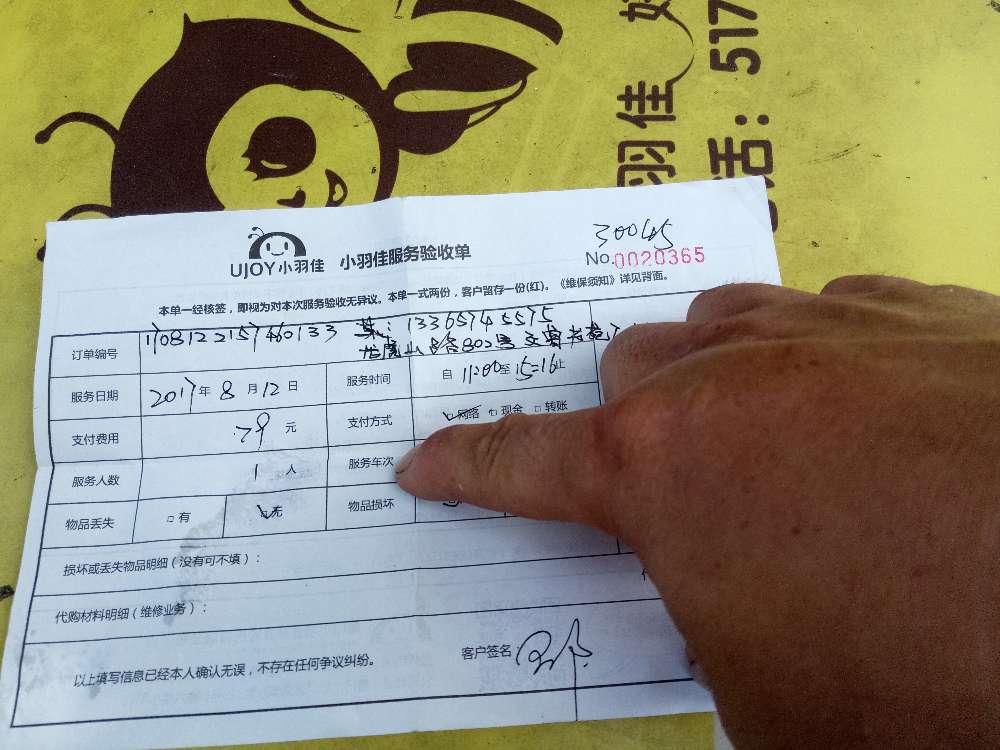 好
羽佳
话：517
UJOY小羽佳 小羽佳服务验收单
30045
No.0020365
本单一经核签，即视为对本次服务验收无异议。本单一式两份，客户留存一份(红)。《维保须知》详见背面。
订单编号 1708122157460133 13365745575
802
服务日期 2017年8月12日 服务时间 自11:00至15:16止
支付费用 79元 支付方式 网络 现金 转账
服务人数 1人 服务车次
物品丢失 有 无 物品损坏
损坏或丢失物品明细（没有可不填）：
代购材料明细（维修业务）：
以上填写信息已经本人确认无误，不存在任何争议纠纷。 客户签名：